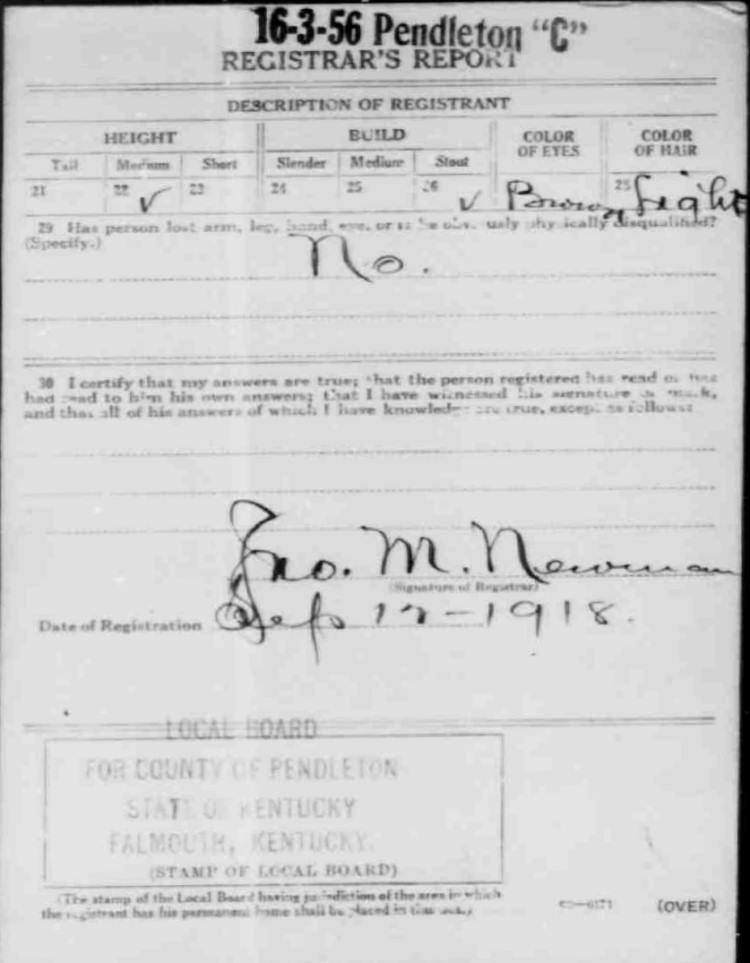 16-3-56 Pendleton "C"
REGISTRAR'S REPORT
DESCRIPTION OF REGISTRANT
HEIGHT BUILD COLOR OF EYES COLOR OF HAIR
Tall Medium Short Slender Medium Stout
21 22 ✓ 23 24 25 26 ✓ Brown 28 Light
29 Has person lost arm, leg, hand, eye, or is he obviously physically disqualified?
(Specify.) No.
30 I certify that my answers are true; that the person registered has read or has
had read to him his own answers; that I have witnessed his signature or mark,
and that all of his answers of which I have knowledge are true, except as follows:
Jno. M. Newman
(Signature of Registrar)
Date of Registration Sep 12-1918.
LOCAL BOARD
FOR COUNTY OF PENDLETON
STATE OF KENTUCKY
FALMOUTH, KENTUCKY.
(STAMP OF LOCAL BOARD)
(The stamp of the Local Board having jurisdiction of the area in which
the registrant has his permanent home shall be placed in this
(OVER)